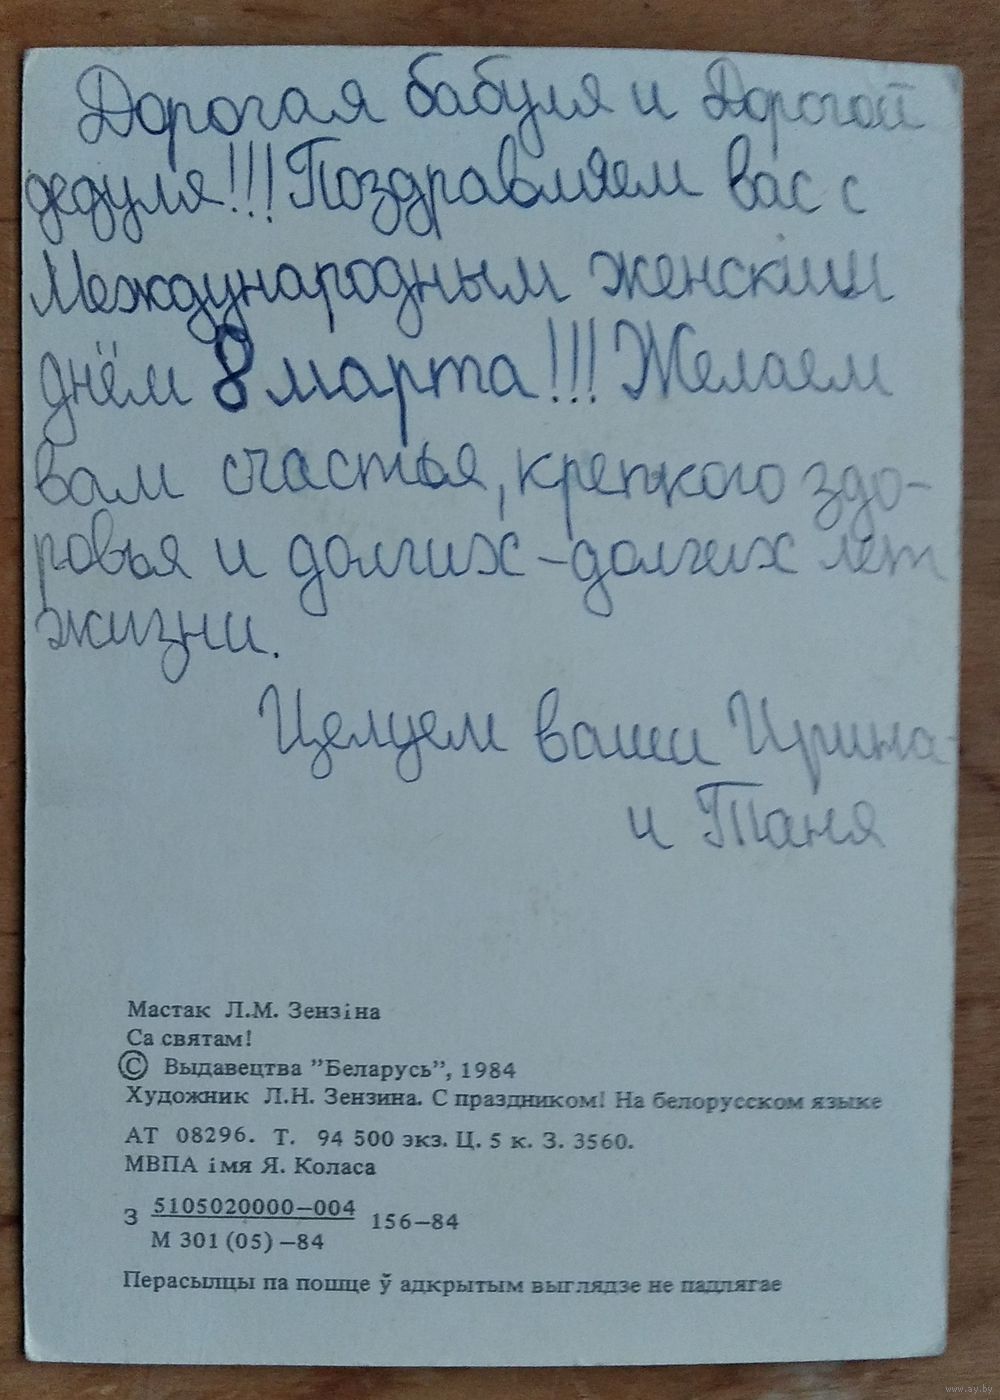 Дорогая бабуля и Дорогой
дедуля!!! Поздравляем вас с
Международным женским
днём 8 марта!!! Желаем
вам счастья, крепкого здо-
ровья и долгих-долгих лет
жизни.
Целуем ваши Ирина
и Таня
Мастак Л.М. Зензіна
Са святам!
© Выдавецтва "Беларусь", 1984
Художник Л.Н. Зензина. С праздником! На белорусском языке
АТ 08296. Т. 94 500 экз. Ц. 5 к. З. 3560.
МВПА імя Я. Коласа
З 5105020000—004 156—84
М 301 (05) —84
Перасылцы па пошце ў адкрытым выглядзе не падлягае
www.ay.by